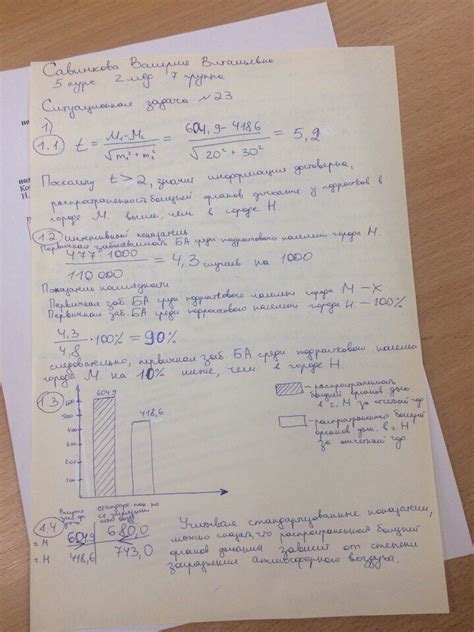 Савинкова Валерия Витальевна
5 курс 2 мед 7 группа
Ситуационная задача №23
1)
1.1 t = M₁-M₂ / √m₁²+m₂² = 604,9-418,6 / √20²+30² = 5,2
Поскольку t > 2, значит информация достоверна,
распространенность болезней органов дыхания у подростков в
городе М. выше, чем в городе Н.
1.2 интенсивный показатель
Первичная заболеваемость БА среди подросткового населения города М.
477·1000 / 110 000 = 4,3 случаев на 1000
Показатель наглядности
Первичная заб. БА среди подросткового населения города М – х
Первичная заб. БА среди подросткового населения города Н – 100%
4,3 / 4,8 · 100% = 90%
следовательно, первичная заб БА среди подростковой населения
города М. на 10% ниже, чем в городе Н.
1.3
604,9
418,6
500
400
300
200
100
– распространенность
болезней органов дых.
за отчетный год
– распространенность болезней
органов дых. в г. Н
за отчетный год
1.4
604,9 680,0
г. Н 418,6 743,0
Учитывая стандартизованные показатели,
можно сказать, что распространенность болезней
органов дыхания зависит от степени
загрязнения атмосферного воздуха.